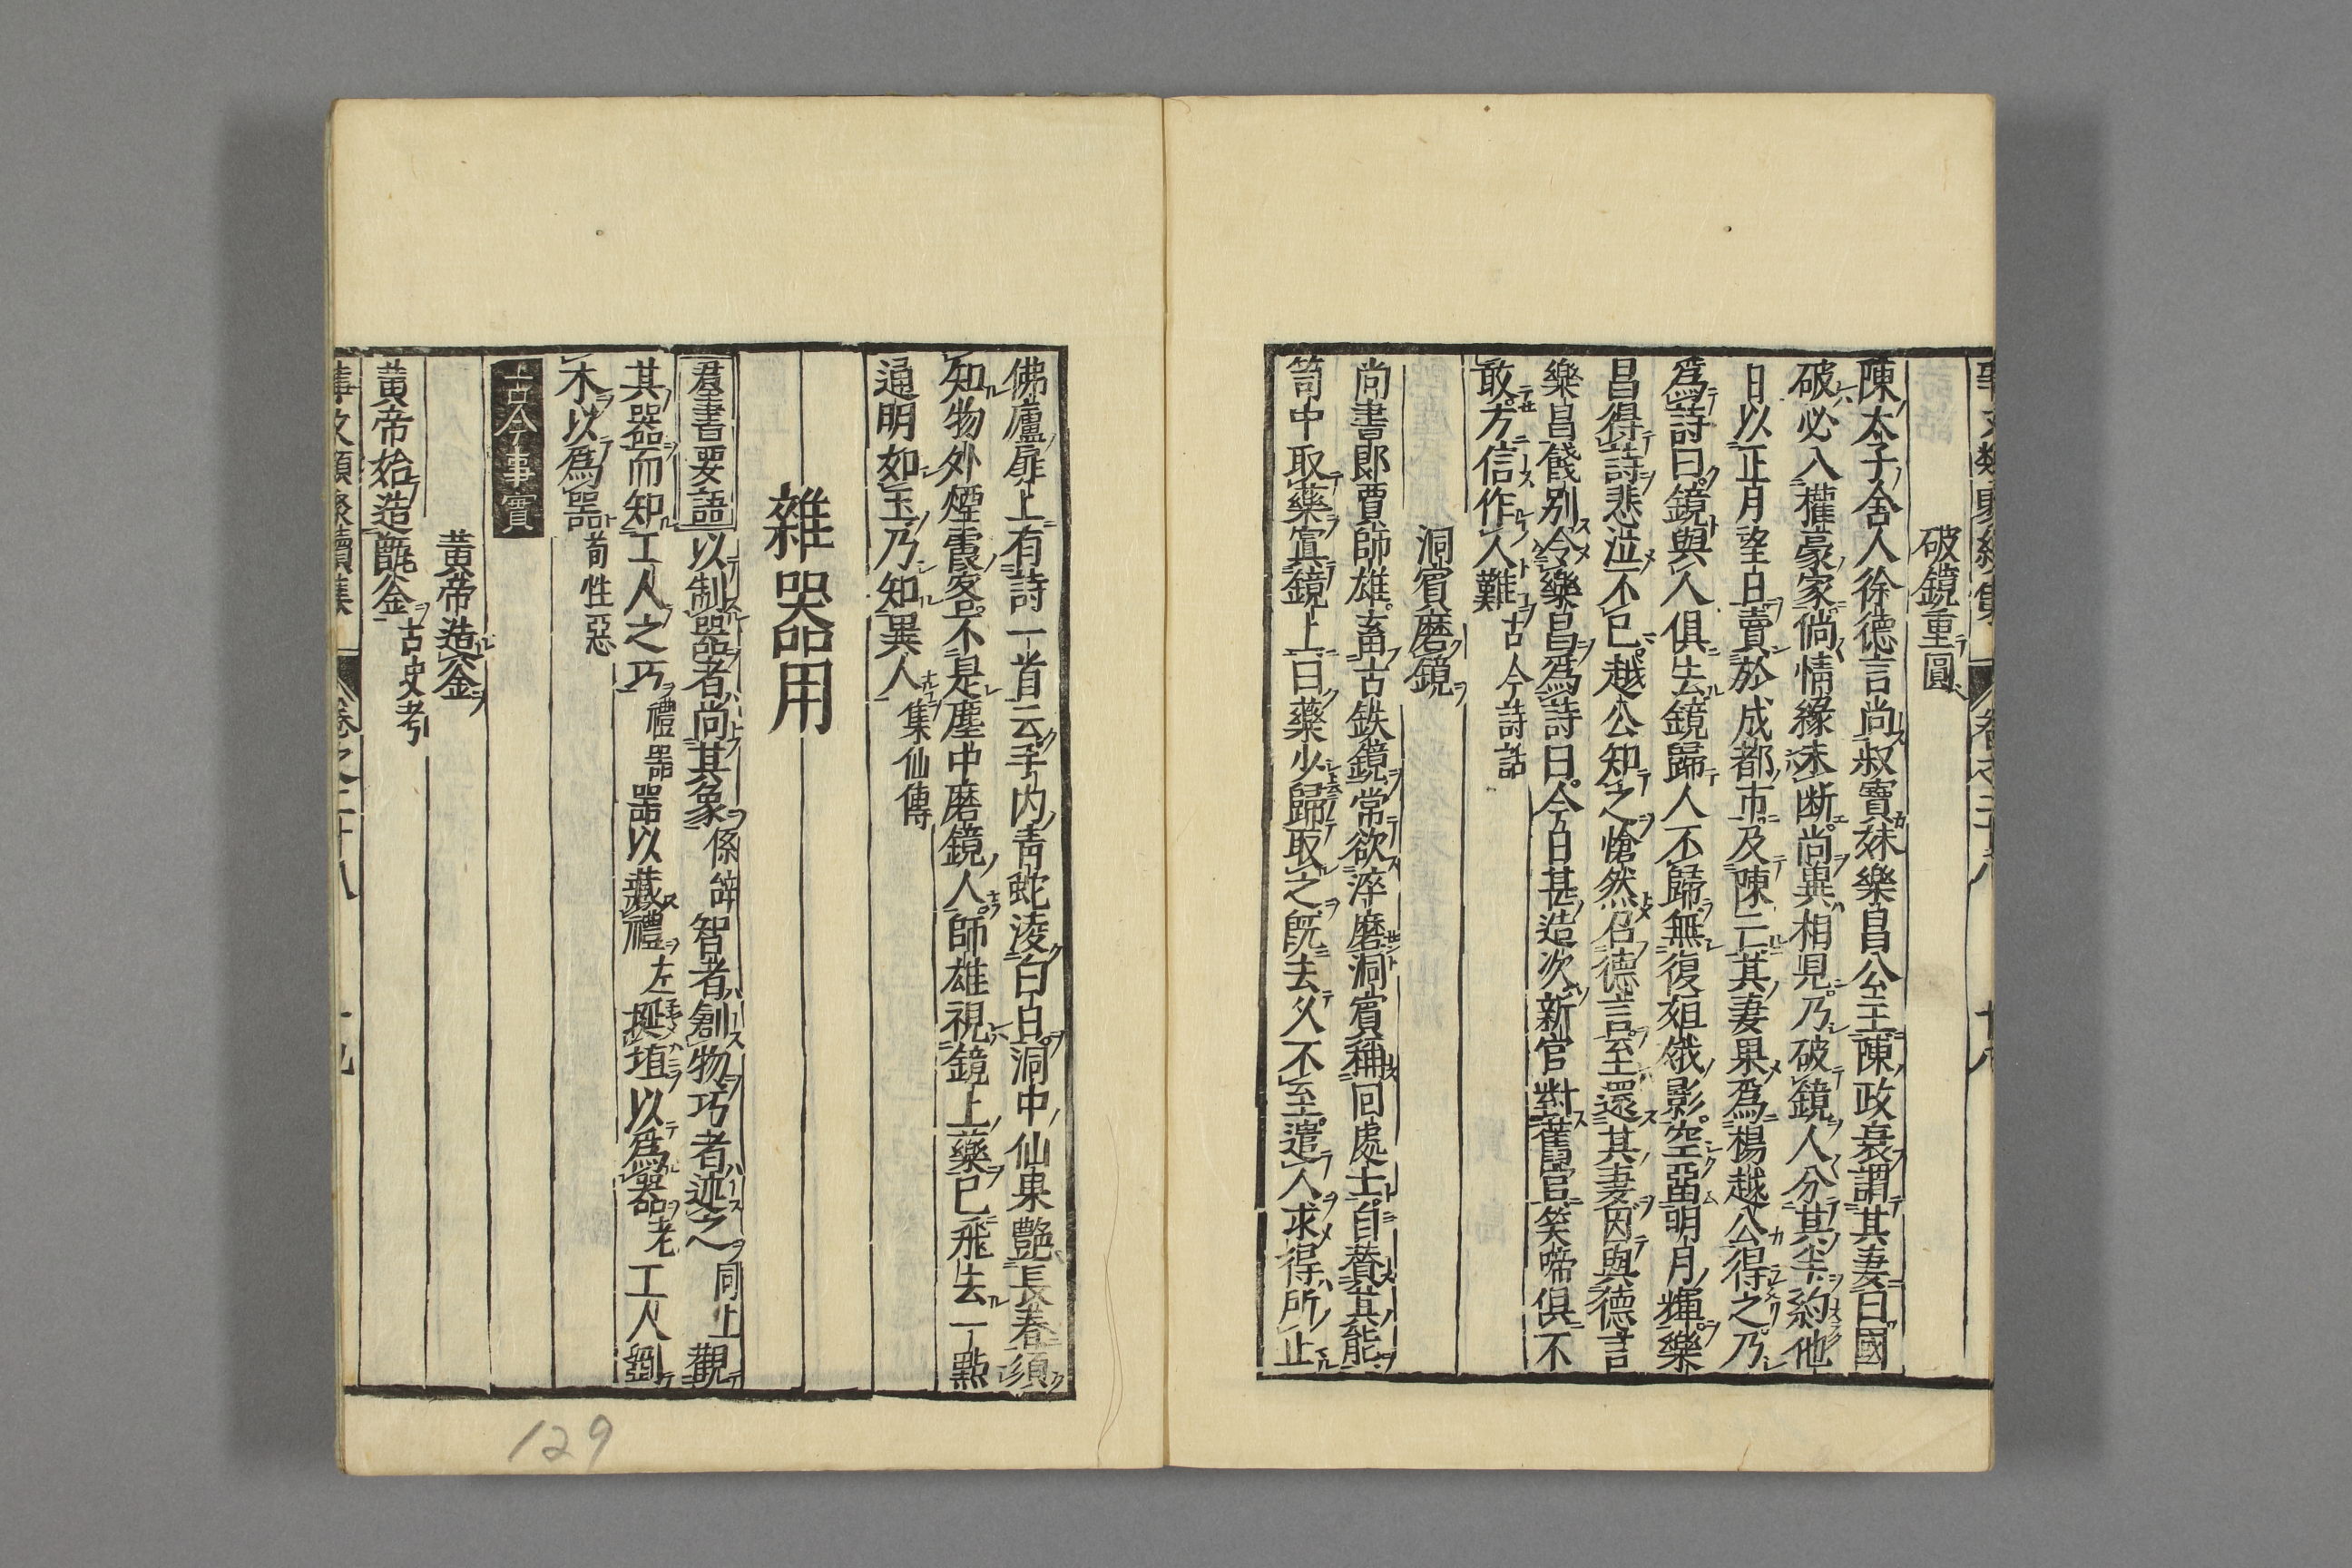 破鏡重圓
陳太子舍人徐德言尚叔寶妹樂昌公主陳政衰謂其妻曰國
破必入權豪家倘情緣未斷尚冀相見乃破鏡人分其半約他
日以正月望日賣於成都市及陳亡其妻果爲楊越公得之乃
爲詩曰鏡與人俱去鏡歸人不歸無復姮娥影空留明月輝樂
昌得詩悲泣不已越公知之愴然召德言至還其妻因與德言
樂昌餞別令樂昌爲詩曰今日甚造次新官對舊官笑啼俱不
敢方信作人難古今詩話
洞賓磨鏡
尚書郎賈師雄畜古鉄鏡常欲淬磨洞賓稱回處士自賛其能
笥中取藥寘鏡上曰藥少歸取之既去久不至遣人求得所止
佛廬扉上有詩一首云手内青蛇凌白日洞中仙果艶長春須
知物外煙霞客不是塵中磨鏡人師雄視鏡上藥已飛去一點
通明如玉乃知異人集仙傳
雜器用
群書要語以制器者尚其象係辞智者創物巧者述之同上觀
其器而知工人之巧禮器器以藏禮左挻埴以爲器老工人斵
木以爲器荀性惡
古今事實
黄帝造釜
黄帝始造甑釜古史考
事文類聚續集 卷之二十八 十九
129